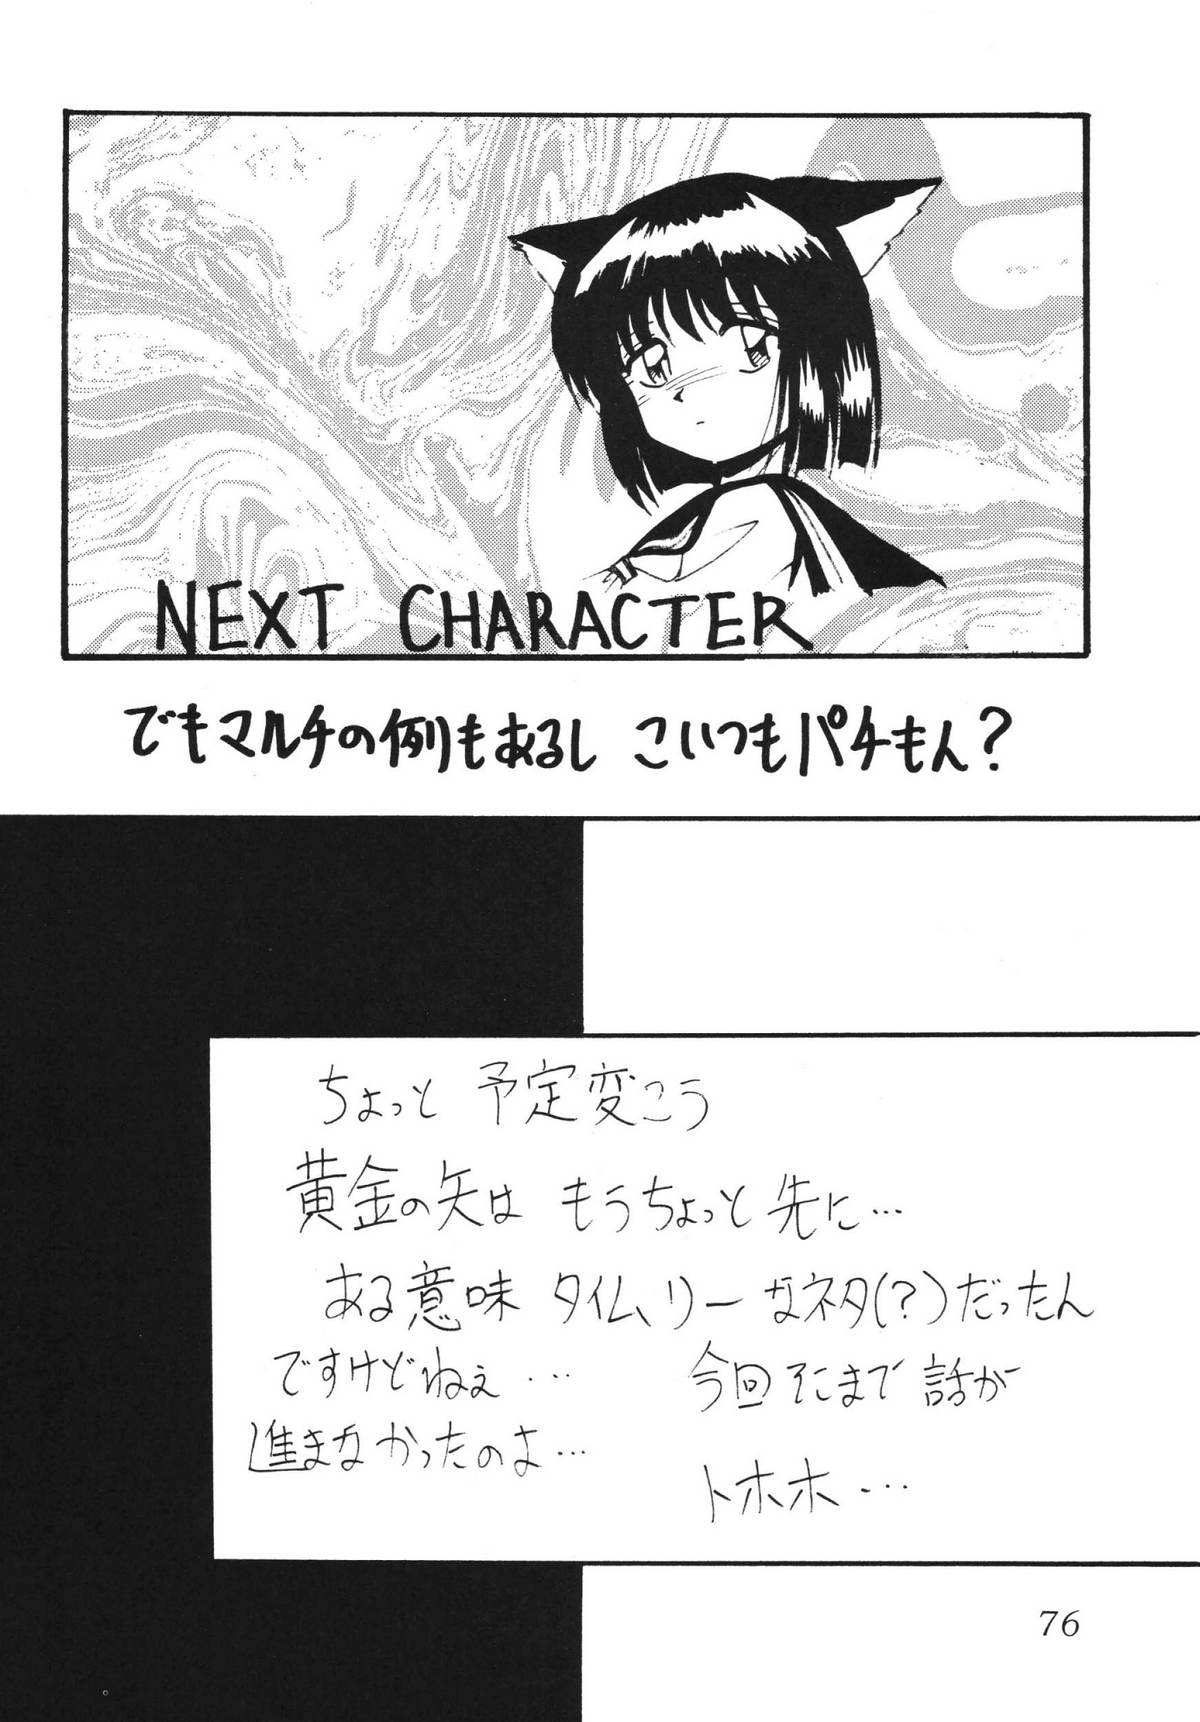 NEXT CHARACTER
でもマルチの例もあるし こいつもパチもん?
ちょっと 予定変こう
黄金の矢は もうちょっと 先に…
ある意味 タイムリーなネタ(?)だったん
ですけどねぇ… 今回そこまで話が
進まなかったのよ… トホホ…
76